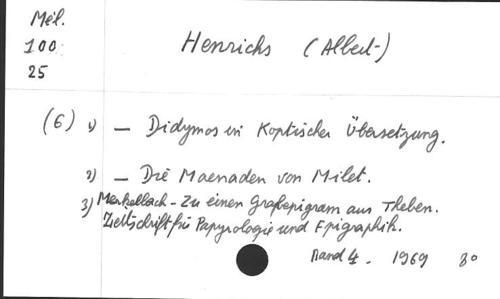 Mél.
100
25
Henrichs (Albert)
(6) 1) — Didymos in Koptischer Übersetzung.
2) — Die Maenaden von Milet.
3) Merkelbach - Zu einen Grabepigram aus Theben.
Zeitschrift für Papyrologie und Epigraphik.
Band 4. 1969 8°